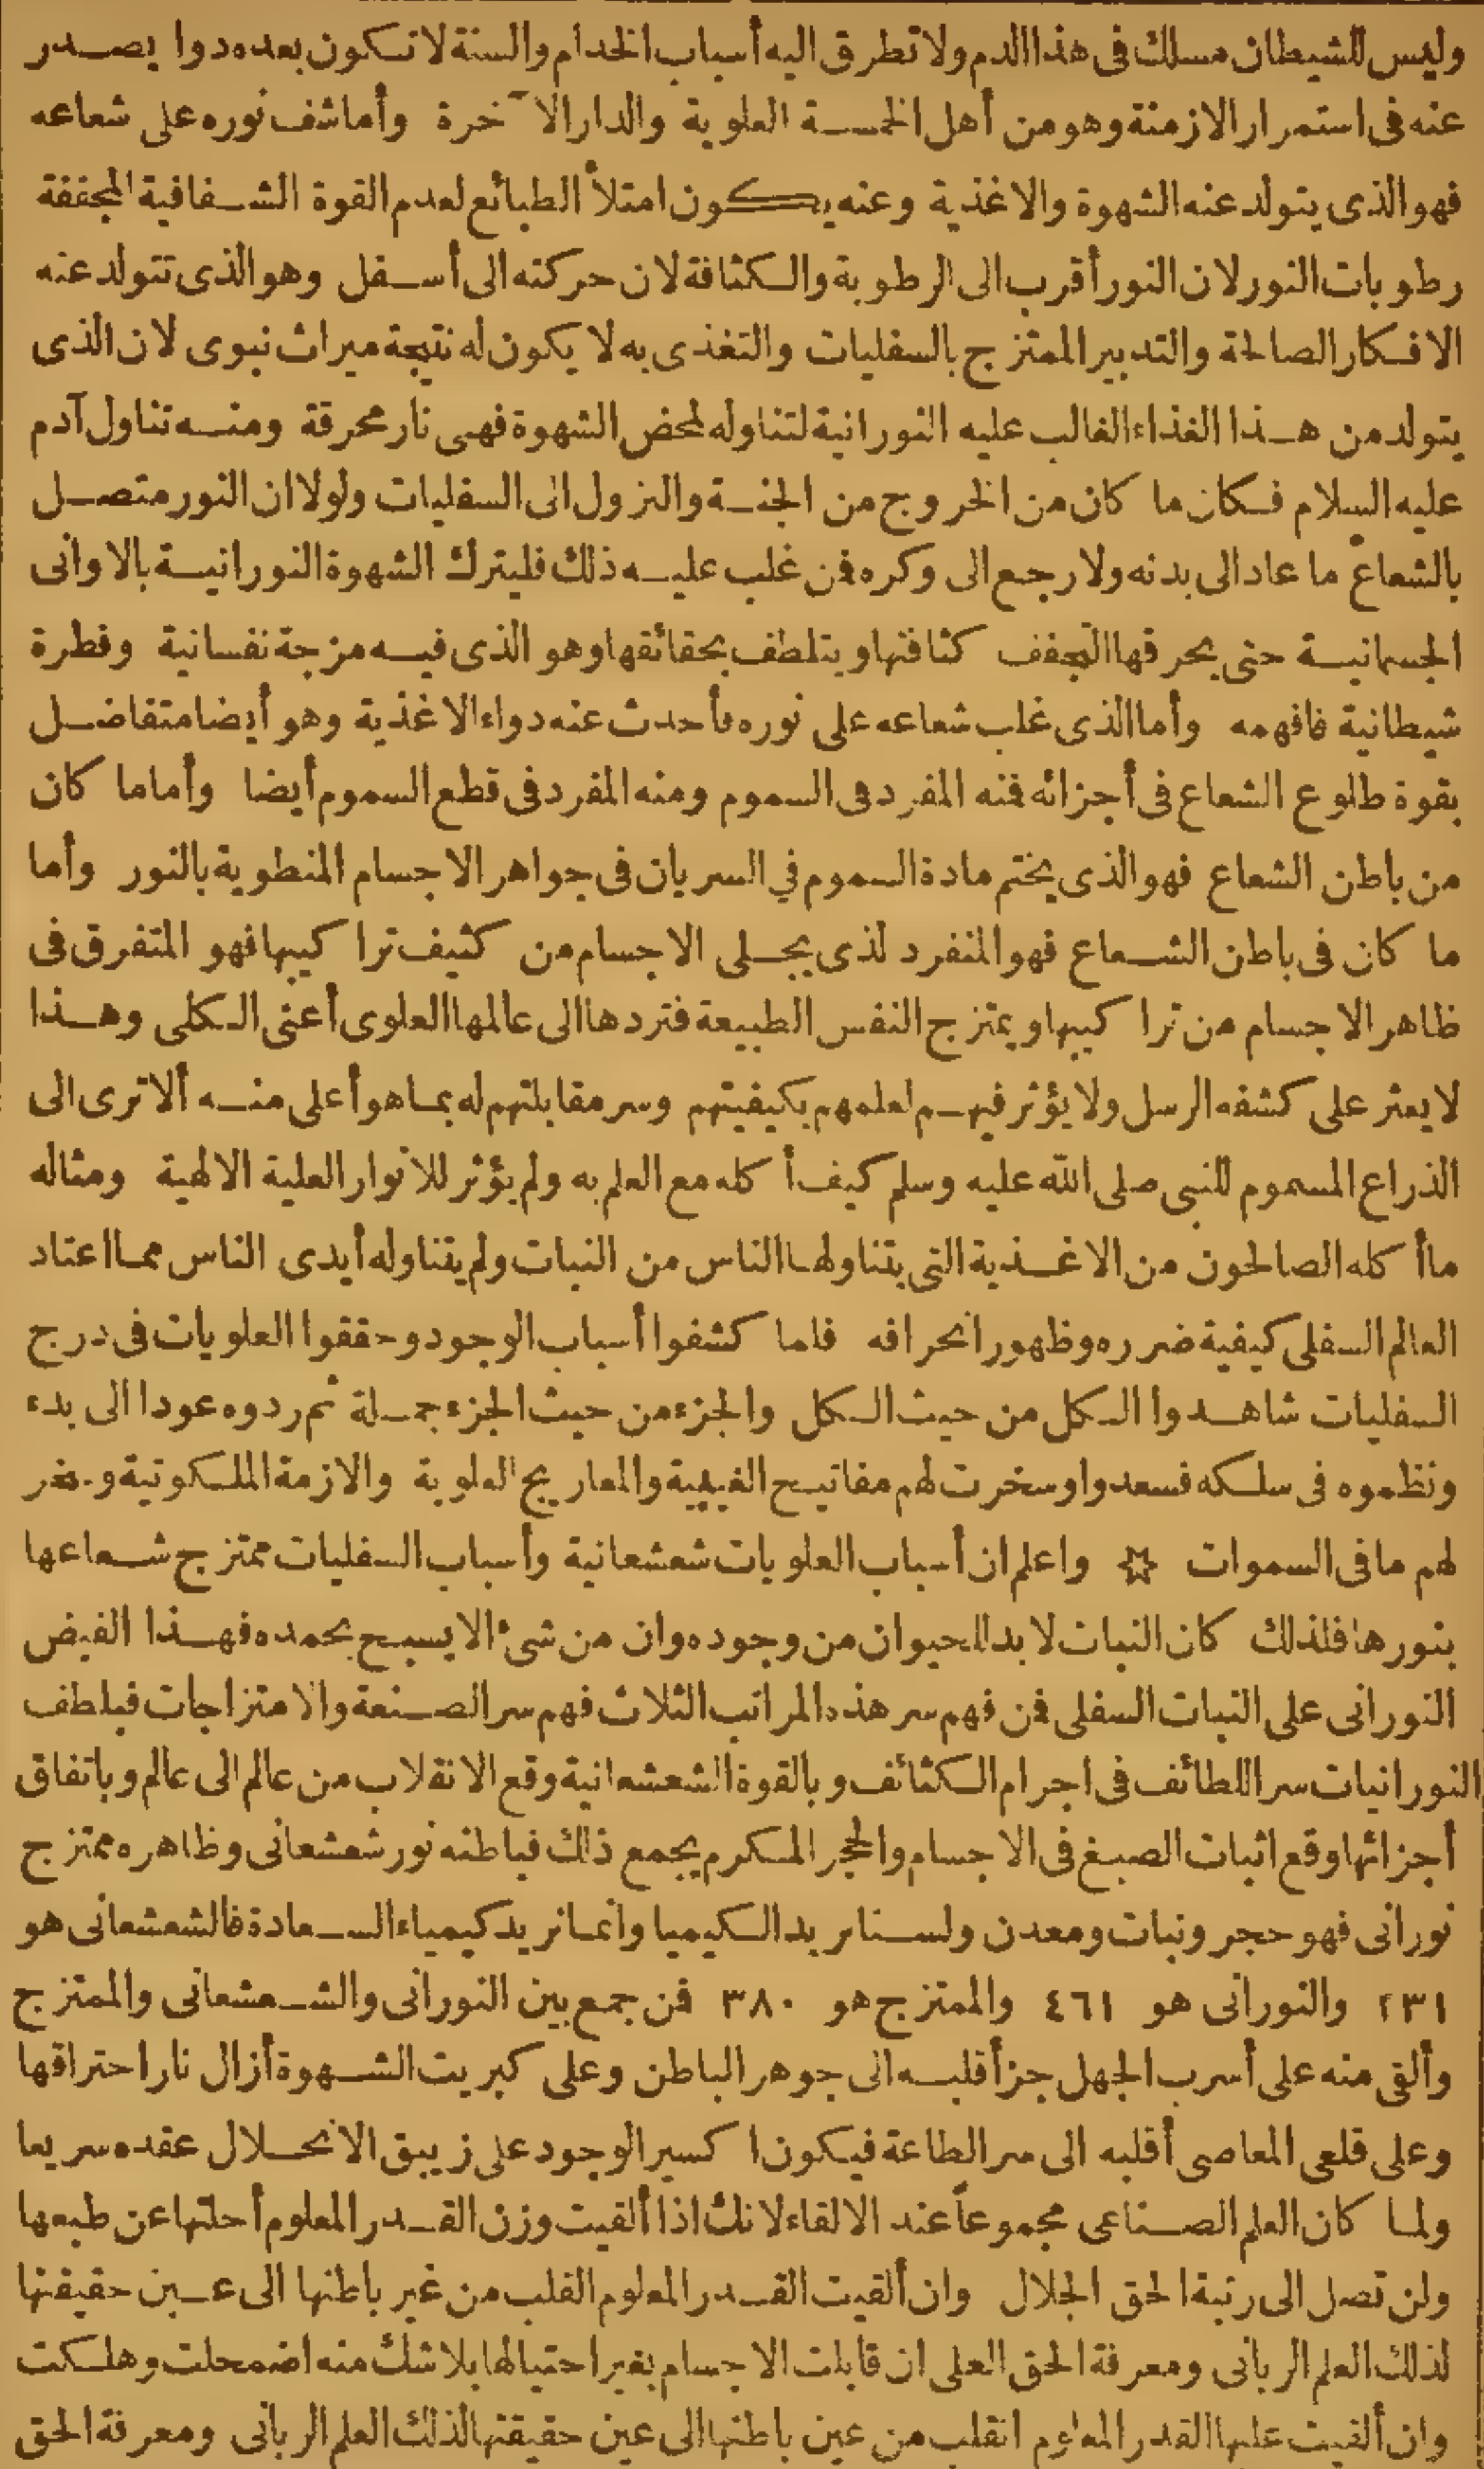 وليس للشيطان مسلك فى هذا الدم ولا تطرق اليه أسباب الخدام والسنة لا تكون بعده دوا يصدر
عنه فى استمرار الازمنة وهو من أهل الخمسة العلوية والدار الآخرة وأما شف نوره على شعاعه
فهو الذى يتولد عنه الشهوة والاغذية وعنه يكون امتلأ الطبائع لعدم القوة الشفافية المجففة
رطوبات النور لان النور أقرب الى الرطوبة والكثافة لان حركته الى أسفل وهو الذى تتولد عنه
الافكار الصالحة والتدبير الممتزج بالسفليات والتغذى به لا يكون له نتيجة ميراث نبوى لان الذى
يتولد من هذا الغذاء الغالب عليه النورانية لتناوله لمحض الشهوة فهى نار محرقة ومنه تناول آدم
عليه السلام فكان ما كان من الخروج من الجنة والنزول الى السفليات ولولا ان النور متصل
بالشعاع ما عاد الى بدنه ولا رجع الى وكره فمن غلب عليه ذلك فليترك الشهوة النورانية بالاوانى
الجسمانية حتى يحرقها التجفف كثافتها ويتلطف بحقائقها وهو الذى فيه مزجة نفسانية وفطرة
شيطانية فافهمه وأما الذى غلب شعاعه على نوره فأحدث عنه دواء الاغذية وهو أيضا متفاضل
بقوة طلوع الشعاع فى أجزائه فمنه المفرد فى السموم ومنه المفرد فى قطع السموم أيضا وأما ما كان
من باطن الشعاع فهو الذى يختم مادة السموم في السريان فى جواهر الاجسام المنطوية بالنور وأما
ما كان فى باطن الشعاع فهو المنفرد لذى يجلى الاجسام من كثيف تراكيبها فهو المتفرق فى
ظاهر الاجسام من تراكيبها ويمتزج النفس الطبيعة فتردها الى عالمها العلوى أعنى الكلى وهذا
لا يعثر على كشفه الرسل ولا يؤثر فيهم لعلمهم بكيفيتهم وسر مقابلتهم له بما هو أعلى منه ألا ترى الى
الذراع المسموم للنبى صلى الله عليه وسلم كيف أكله مع العلم به ولم يؤثر للانوار العلية الالهية ومثاله
ما أكله الصالحون من الاغذية التى يتناولها الناس من النبات ولم يتناوله أيدى الناس مما اعتاد
العالم السفلى كيفية ضرره وظهور انحرافه فلما كشفوا أسباب الوجود وحققوا العلويات فى درج
السفليات شاهدوا الكل من حيث الكل والجزء من حيث الجزء جملة ثم ردوه عودا الى بدء
ونظموه فى سلكه فسعدوا وسخرت لهم مفاتيح الغيبية والمعاريج العلوية والازمة الملكوتية وسخر
لهم ما فى السموات ✡ واعلم ان أسباب العلويات شعشعانية وأسباب السفليات ممتزج شعاعها
بنورها فلذلك كان النبات لا بد للحيوان من وجوده وان من شئ الا يسبح بحمده فهذا الفيض
النورانى على النبات السفلى فمن فهم سر هذه المراتب الثلاث فهم سر الصنعة والامتزاجات فبلطف
النورانيات سر اللطائف فى اجرام الكثائف وبالقوة الشعشعانية وقع الانقلاب من عالم الى عالم وباتفاق
أجزائها وقع اثبات الصبغ فى الاجسام والحجر المكرم يجمع ذلك فباطنه نور شعشعانى وظاهره ممتزج
نورانى فهو حجر ونبات ومعدن ولسنا نريد الكيميا وانما نريد كيمياء السعادة فالشعشعانى هو
٢٣١ والنورانى هو ٤٦١ والممتزج هو ٣٨٠ فمن جمع بين النورانى والشعشعانى والممتزج
وألقى منه على أسرب الجهل جزأ قلبه الى جوهر الباطن وعلى كبريت الشهوة أزال نار احتراقها
وعلى قلعى المعاصى أقلبه الى سر الطاعة فيكون اكسير الوجود على زيبق الانحلال عقده سريعا
ولما كان العلم الصناعى مجموعاً عند الالقاء لانك اذا ألقيت وزن القدر المعلوم أحلتها عن طبعها
ولن تصل الى رتبة الحق الجلال وان ألقيت القدر المعلوم القلب من غير باطنها الى عين حقيقتها
لذلك العلم الربانى ومعرفة الحق العلى ان قابلت الاجسام بغير احتيالها بلا شك منه اضمحلت وهلكت
وان ألقيت عليها القدر المعلوم انقلب من عين باطنها الى عين حقيقتها لذلك العلم الربانى ومعرفة الحق